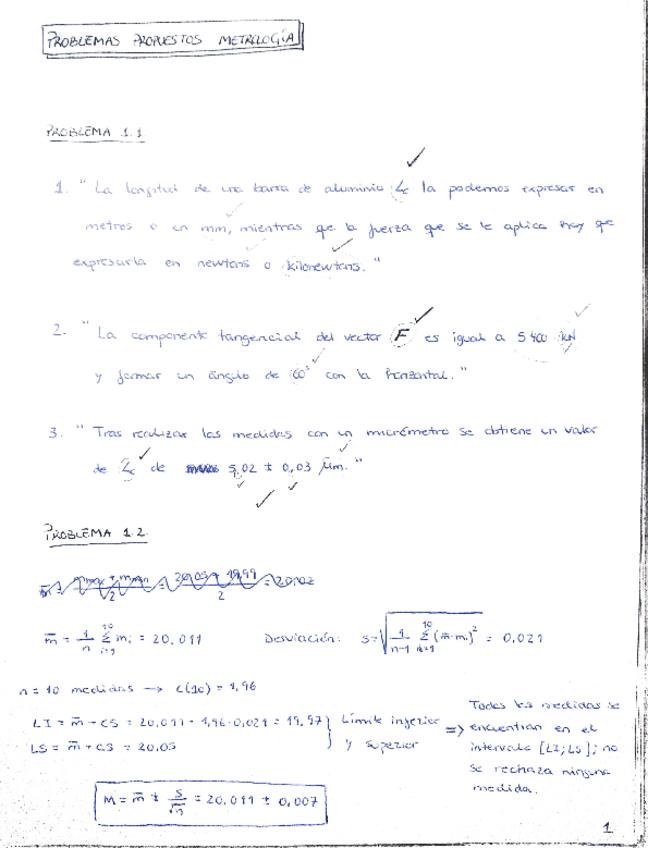 PROBLEMAS PROPUESTOS METROLOGÍA
PROBLEMA 1.1.
1. "La longitud de una barra de aluminio Lc la podemos expresar en
metros o en mm, mientras que la fuerza que se le aplica hay que
expresarla en newtons o kilonewtons."
2. "La componente tangencial del vector F es igual a 5 400 kN
y formar un ángulo de 60° con la horizontal."
3. "Tras realizar las medidas con un micrómetro se obtiene un valor
de Lc de 5,02 ± 0,03 μm."
PROBLEMA 1.2.
m̄ = (mmax + mmin)/2 = (20,05 + 19,99)/2 = 20,02
m̄ = 1/n Σ(i=1→10) mi = 20,011 Desviación: s = √(1/(n-1) Σ(i=1→10) (m̄-mi)²) = 0,021
n = 10 medidas → c(10) = 1,96
LI = m̄ - cs = 20,011 - 1,96·0,021 = 19,97 } Límite inferior
LS = m̄ + cs = 20,05 } y superior
=> Todas las medidas se
encuentran en el
intervalo [LI; LS]; no
se rechaza ninguna
medida.
M = m̄ ± s/√n = 20,011 ± 0,007
1